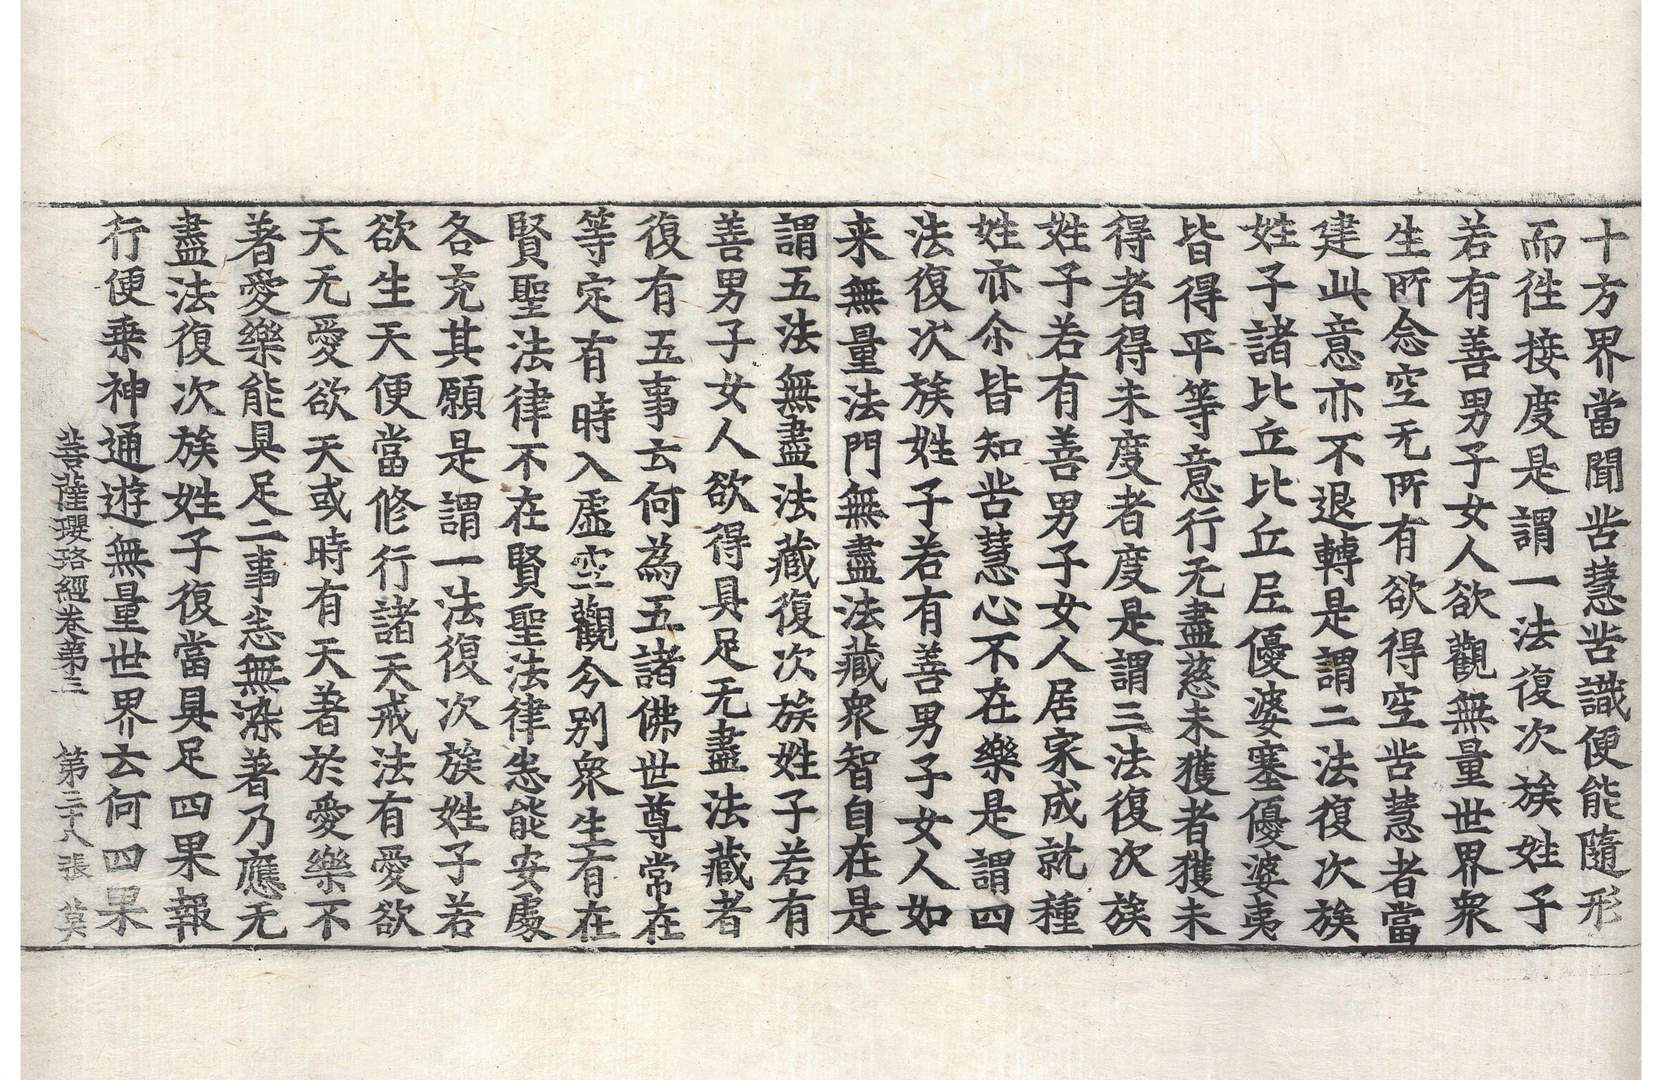 十方界當聞苦慧苦識便能隨形
而往接度是謂一法復次族姓子
若有善男子女人欲觀無量世界衆
生所念空无所有欲得空苦慧者當
建此意亦不退轉是謂二法復次族
姓子諸比丘比丘尼優婆塞優婆夷
皆得平等意行无盡慈未獲者獲未
得者得未度者度是謂三法復次族
姓子若有善男子女人居家成就種
姓亦尒皆知苦慧心不在樂是謂四
法復次族姓子若有善男子女人如
来無量法門無盡法藏衆智自在是
謂五法無盡法藏復次族姓子若有
善男子女人欲得具足无盡法藏者
復有五事云何為五諸佛世尊常在
等定有時入虛空觀分別衆生有在
賢聖法律不在賢聖法律悉能安處
各充其願是謂一法復次族姓子若
欲生天便當修行諸天戒法有愛欲
天无愛欲天或時有天著於愛樂不
著愛樂能具足二事悉無染著乃應无
盡法復次族姓子復當具足四果報
行便乗神通遊無量世界云何四果
菩薩瓔珞經卷第三 第二十八張 莫